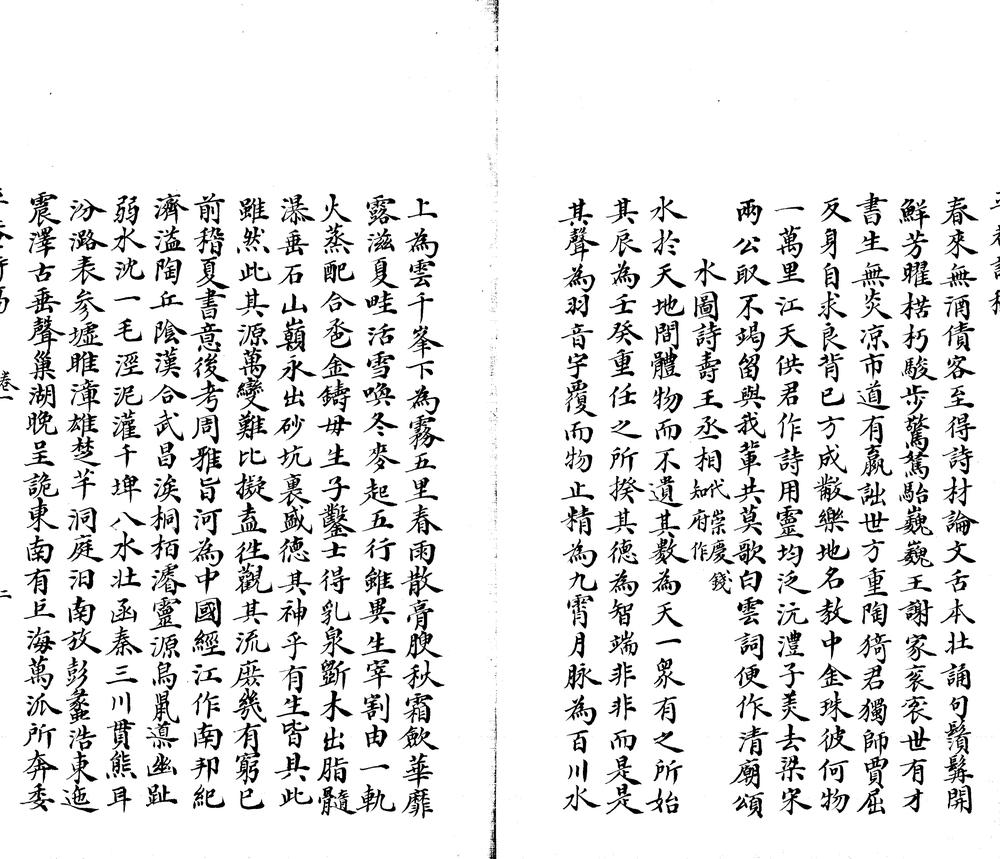 春來無酒債客至得詩材論文舌本壯誦句鬚髯開
鮮芳曜楛朽駿步驚駑駘巍巍王謝家衮衮世有才
書生無炎凉市道有羸詘世方重陶猗君獨師賈屈
反身自求良背已方成黻樂地名教中金珠彼何物
一萬里江天供君作詩用靈均泛沅澧子美去梁宋
兩公取不竭留與我輩共莫歌白雲詞便作清廟頌
水圖詩壽王丞相代崇慶錢知府作
水於天地間體物而不遺其數為天一衆有之所始
其辰為壬癸重任之所揆其德為智端非非而是是
其聲為羽音字覆而物止精為九霄月脉為百川水
上為雲千峯下為霧五里春雨散膏腴秋霜歛華靡
露滋夏畦活雪喚冬麥起五行雖異生宰割由一軌
火蒸配合烝金鑄毋生子鑿士得乳泉斷木出脂髓
瀑垂石山巔永出砂坑裏盛德其神乎有生皆具此
雖然此其源萬變難比擬盍徃觀其流庶幾有窮已
前稽夏書意後考周雅旨河為中國經江作南邦紀
濟溢陶丘陰漢合武昌涘桐栢濬靈源鳥鼠導幽趾
弱水沈一毛涇泥灌千埤八水壯函秦三川貫熊耳
汾潞表參墟睢漳雄楚芊洞庭汨南放彭蠡浩東迤
震澤古垂聲巢湖晚呈詭東南有巨海萬派所奔委
卷一
二